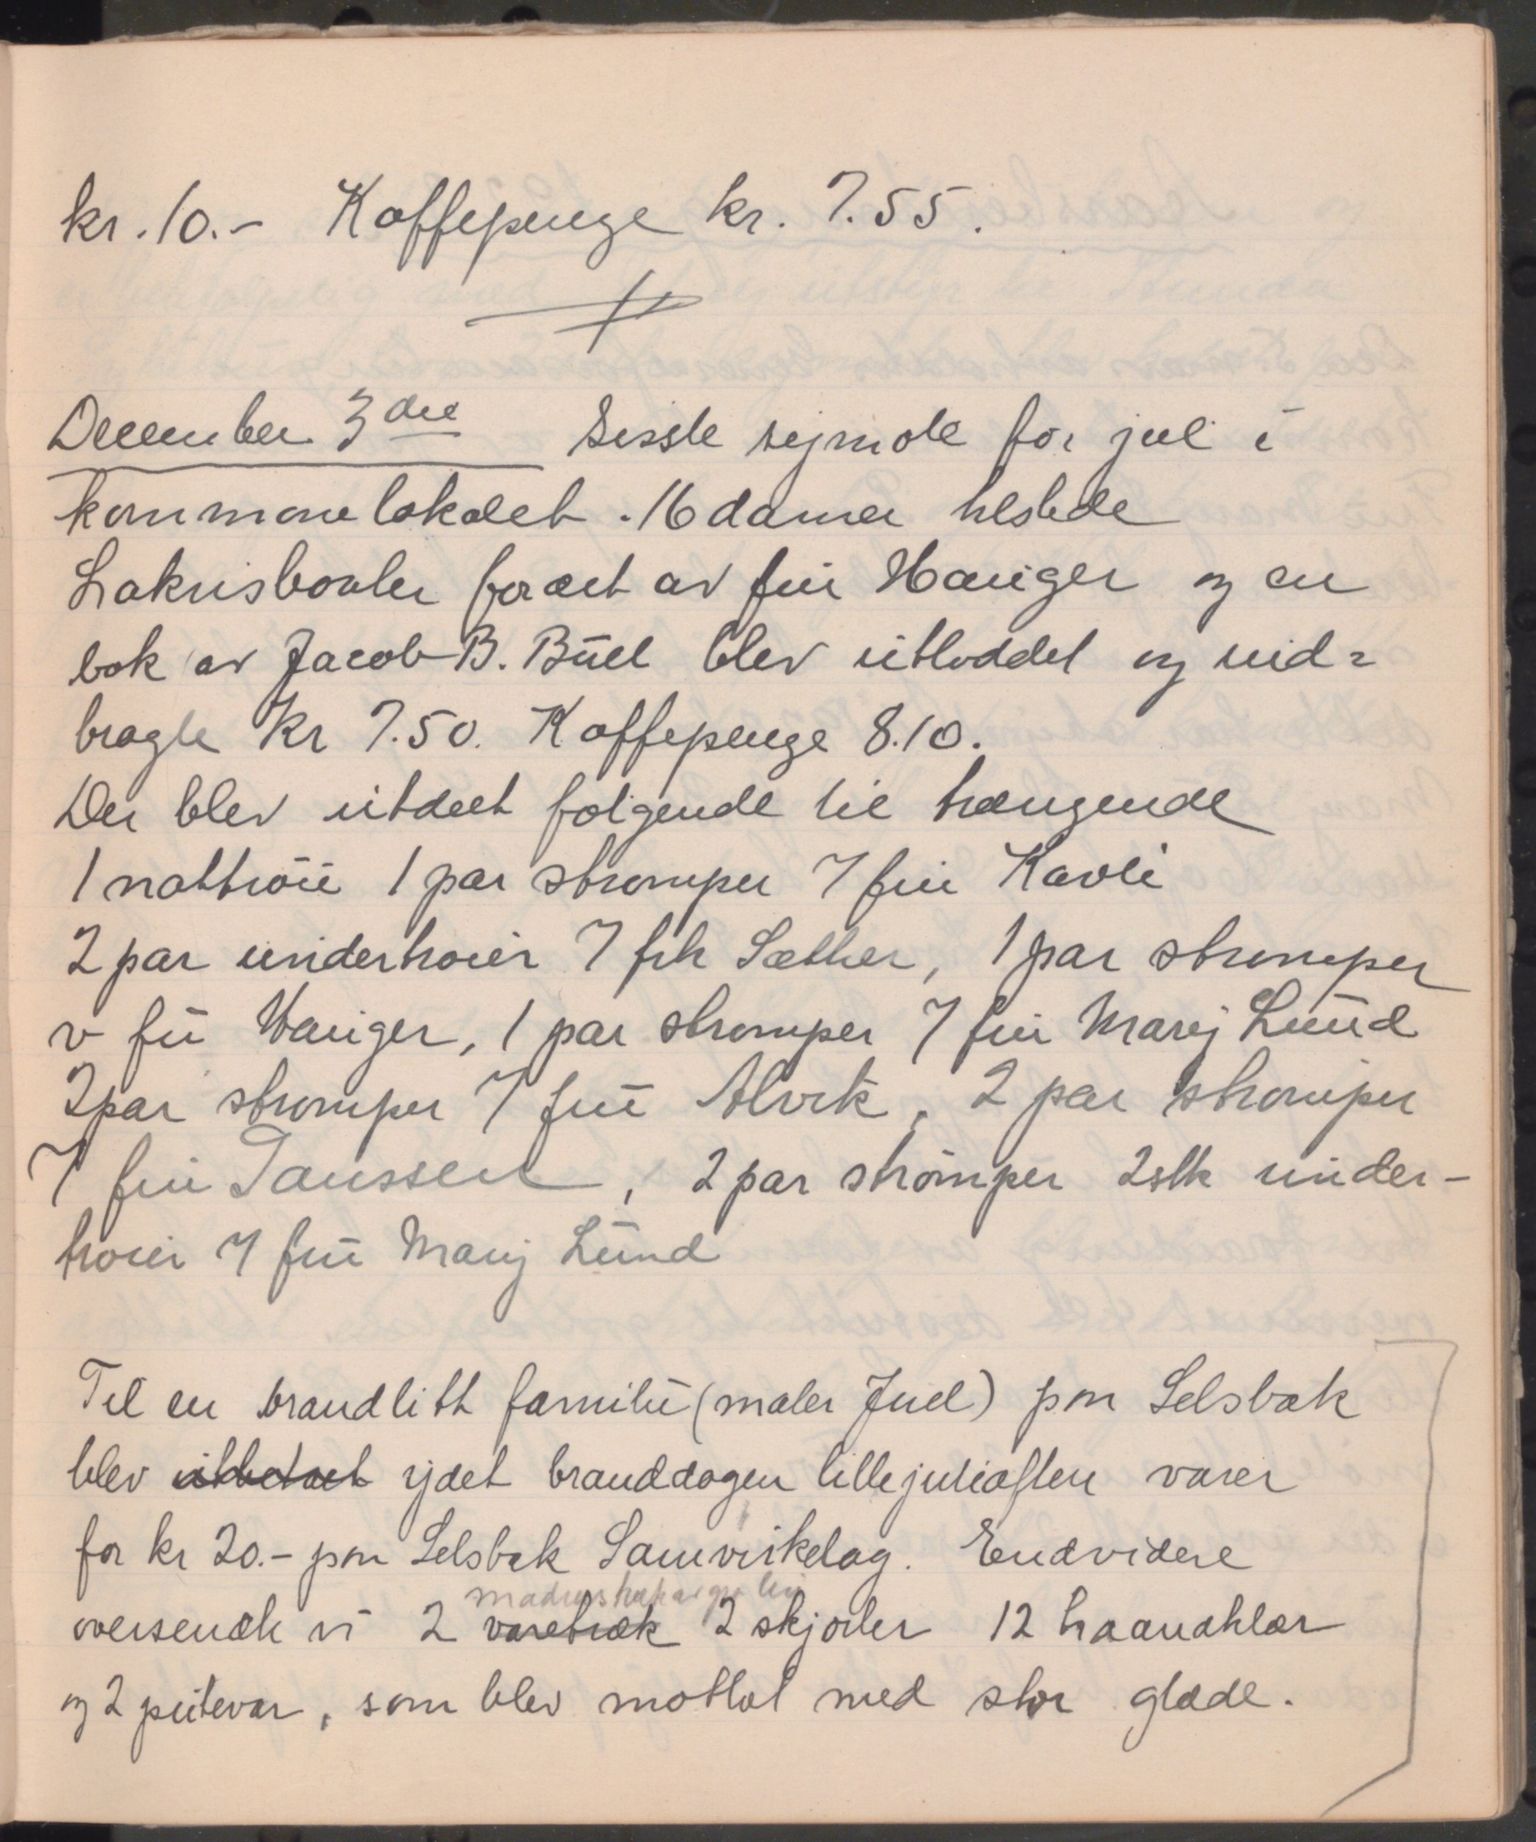 kr. 10.- Kaffepenge kr. 7.55.
December 3die Sisste symøte før jul i
kommunelokalet. 16 damer tilstede
Lakrisboater foræret av fru Hauger og en
bok av Jacob B. Bull blev utloddet og ind=
bragte kr 7.50. Kaffepenge 8.10.
Der blev utdelt følgende til trængende
1 nattrøie 1 par strømper 7 fru Kavli
2 par undertrøier 7 frk Sæther, 1 par strømper
v fru Hauger, 1 par strømper 7 fru Marij Lund
2 par strømper 7 fru Alvik, 2 par strømper
7 fru Janssen, 2 par strømper 2 stk under-
trøier 7 fru Marij Lund
Til en brandlitt familie (maler Juel) paa Selsbak
blev utbetalt ydet branddagen lillejuleaften varer
for kr 20.- paa Selsbak Samvirkelag. Endvidere
oversendte vi 2 varetræk 2 skjorter 12 haandklær
og 2 putevar, som blev mottat med stor glæde.